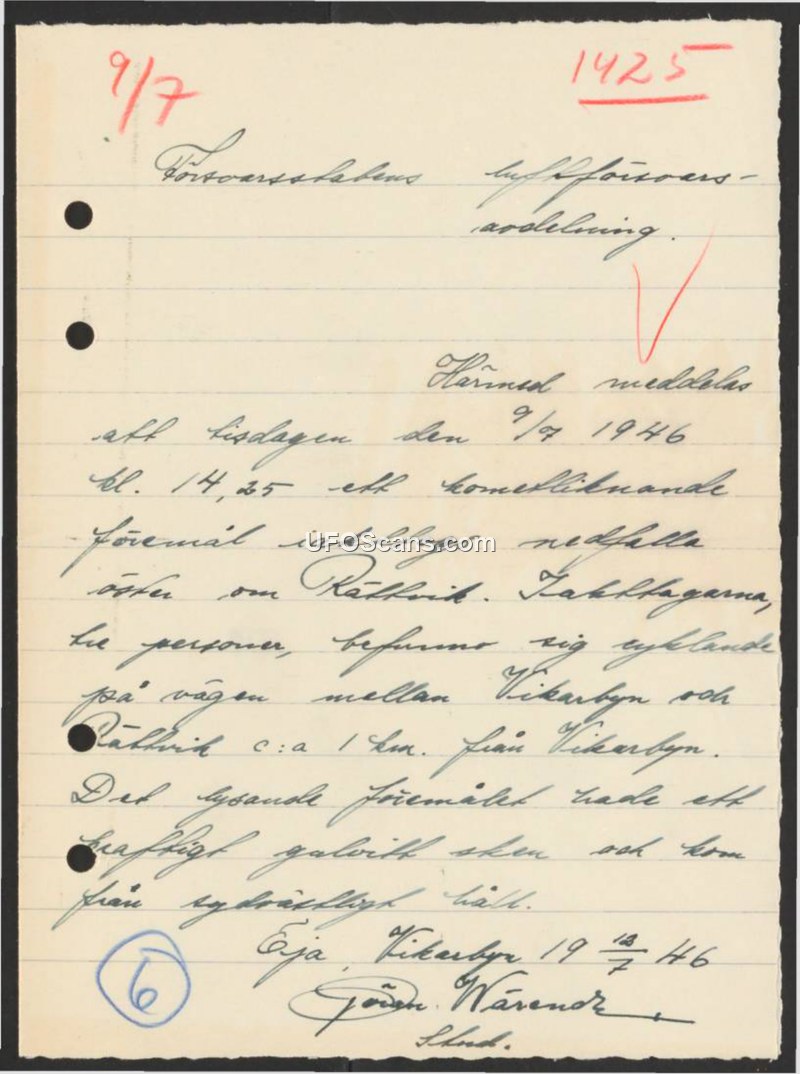 9/7
1425
Försvarsstabens luftförsvars-
avdelning.
Härmed meddelas
att tisdagen den 9/7 1946
kl. 14,25 ett kometliknande
föremål nedfalla
UFOScans.com
öster om Rättvik. Iakttagarna,
tre personer, befunno sig cyklande
på vägen mellan Vikarbyn och
Rättvik c:a 1 km. från Vikarbyn.
Det lysande föremålet hade ett
kraftigt gulvitt sken och kom
från sydvästligt håll.
Vikarbyn 19 12/7 46
Göran
Stud.
6